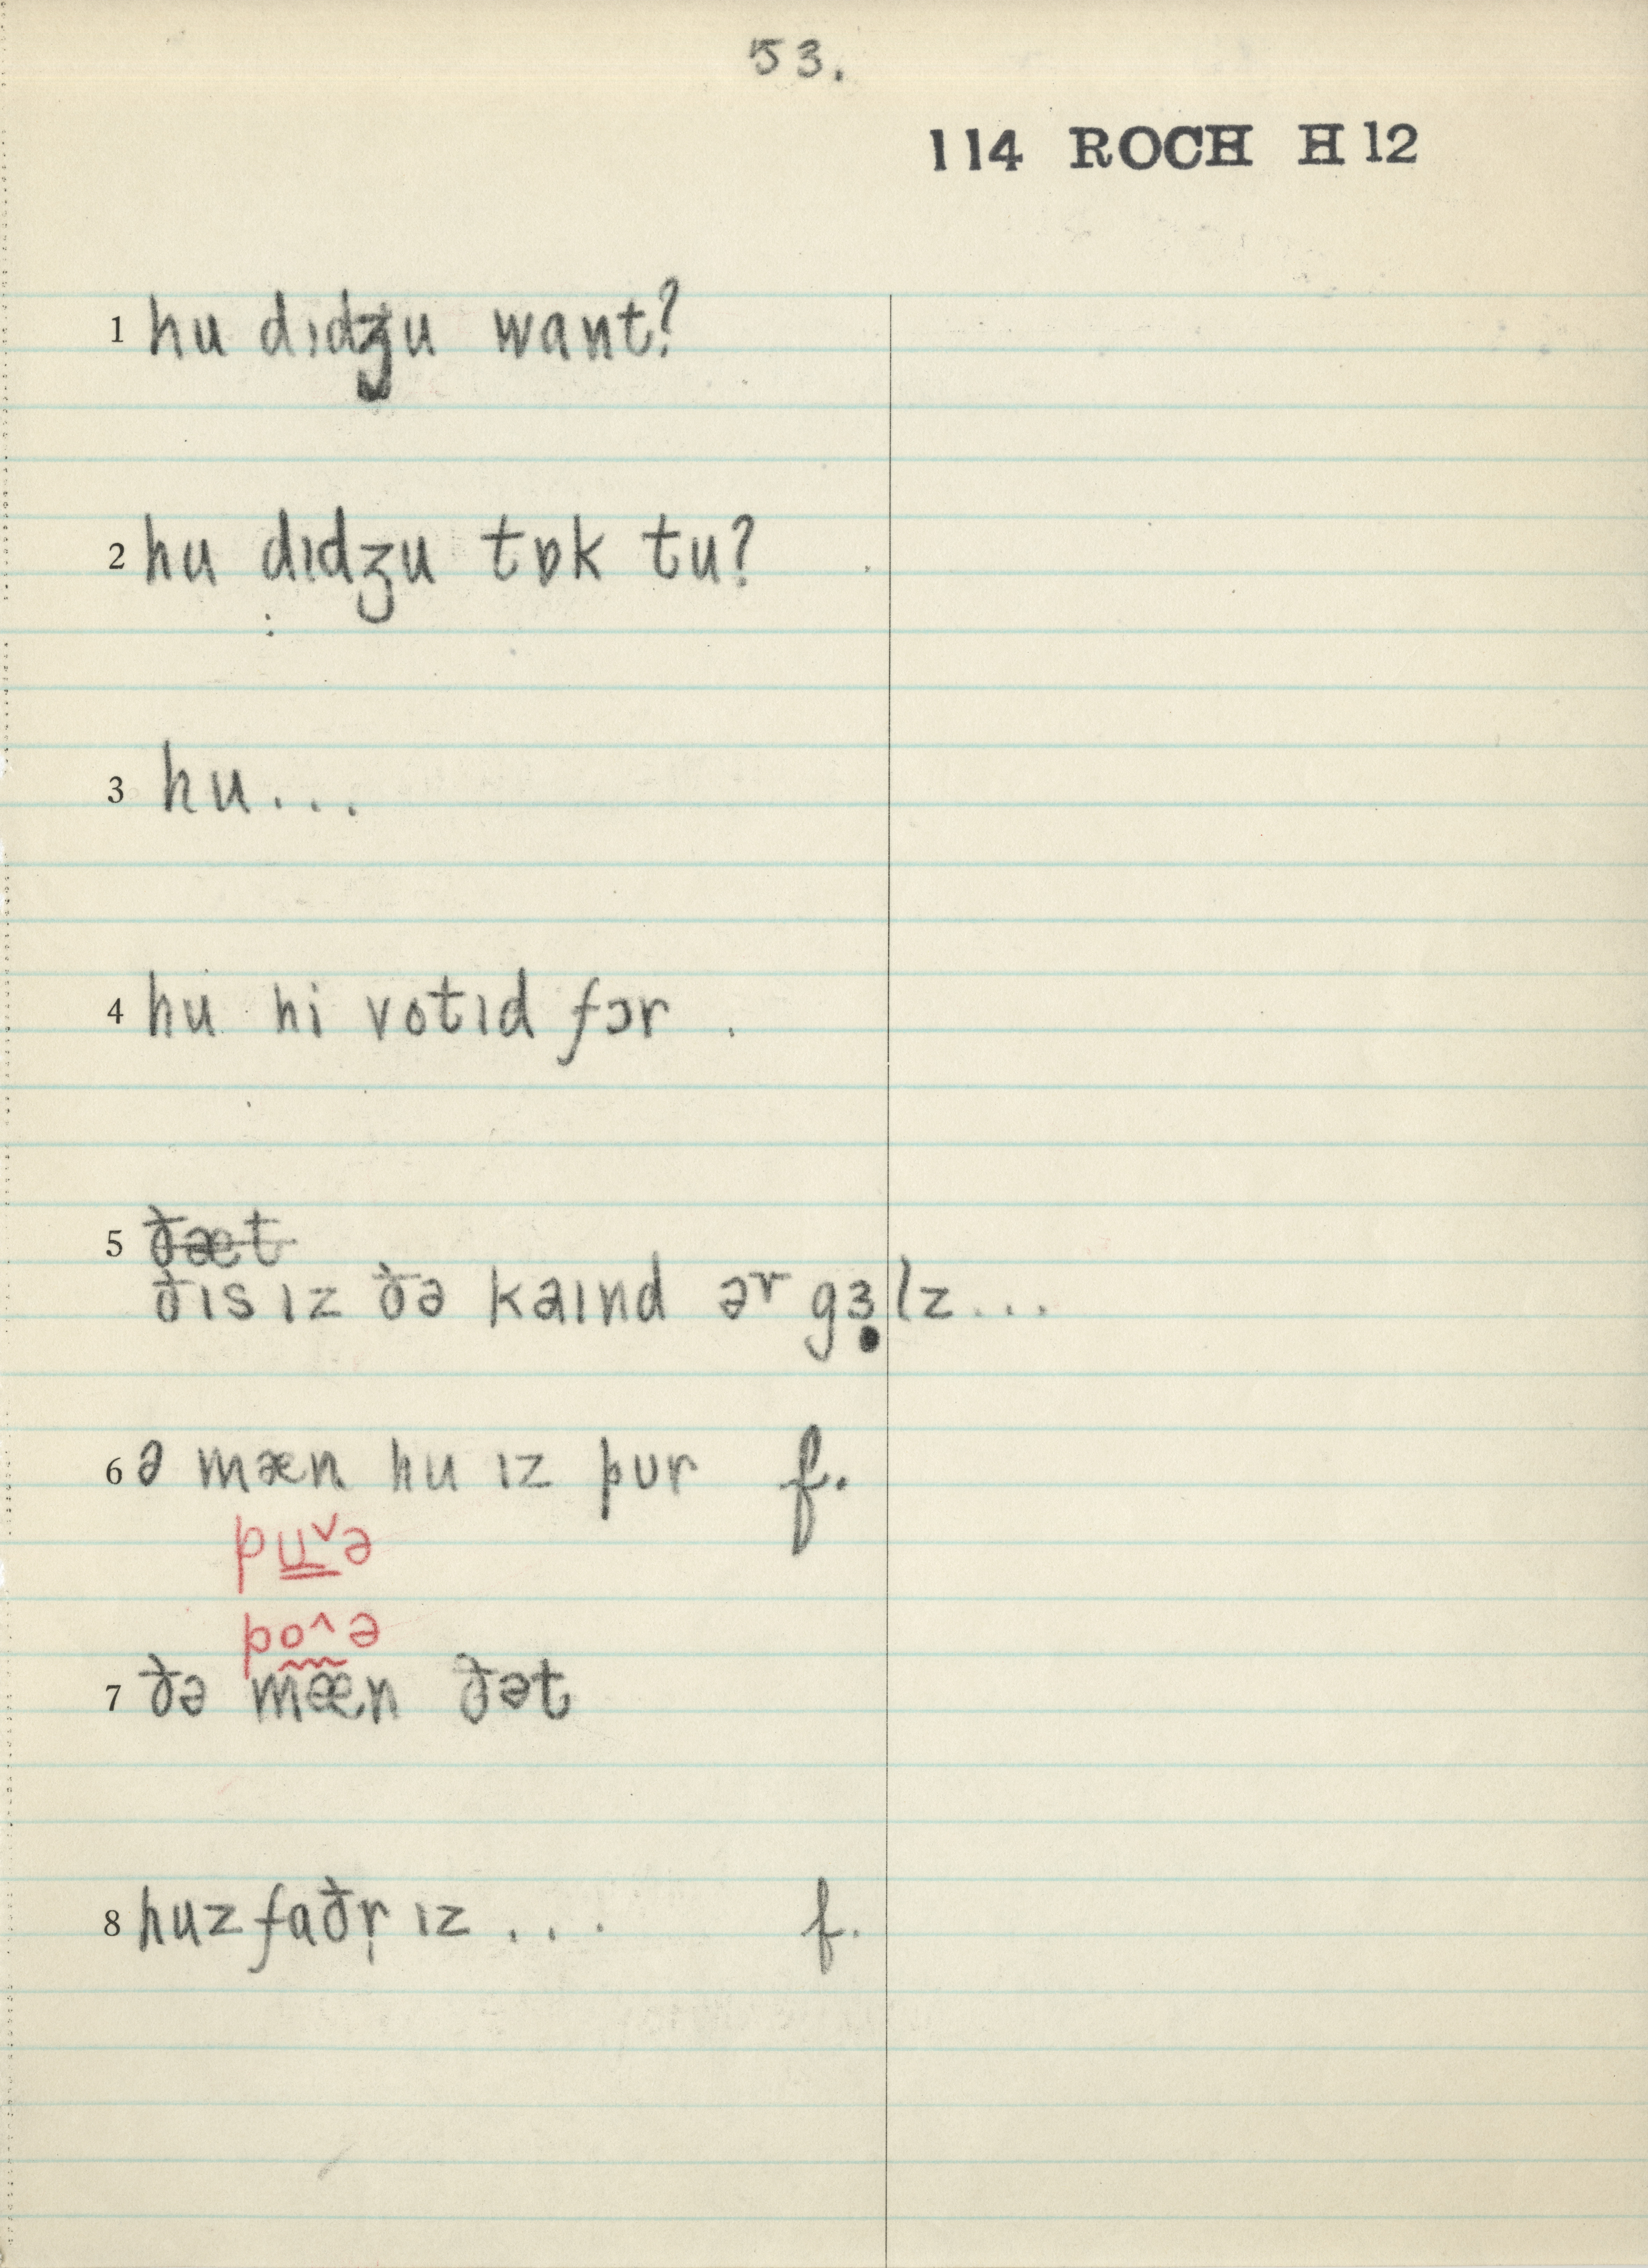 53.
114 ROCH H 12
1 hu dɪdʒu want?
2 hu dɪdʒu tɒk tu?
3 hu...
4 hu hi votɪd fɔr .
5 ðæt
ðɪs ɪz ðə kaɪnd ər gɜ̣lz...
6 ə mæn hu ɪz pur f.
puᵛə
po^ə
7 ðə mæn ðət
8 huz faðr̩ ɪz ... f.